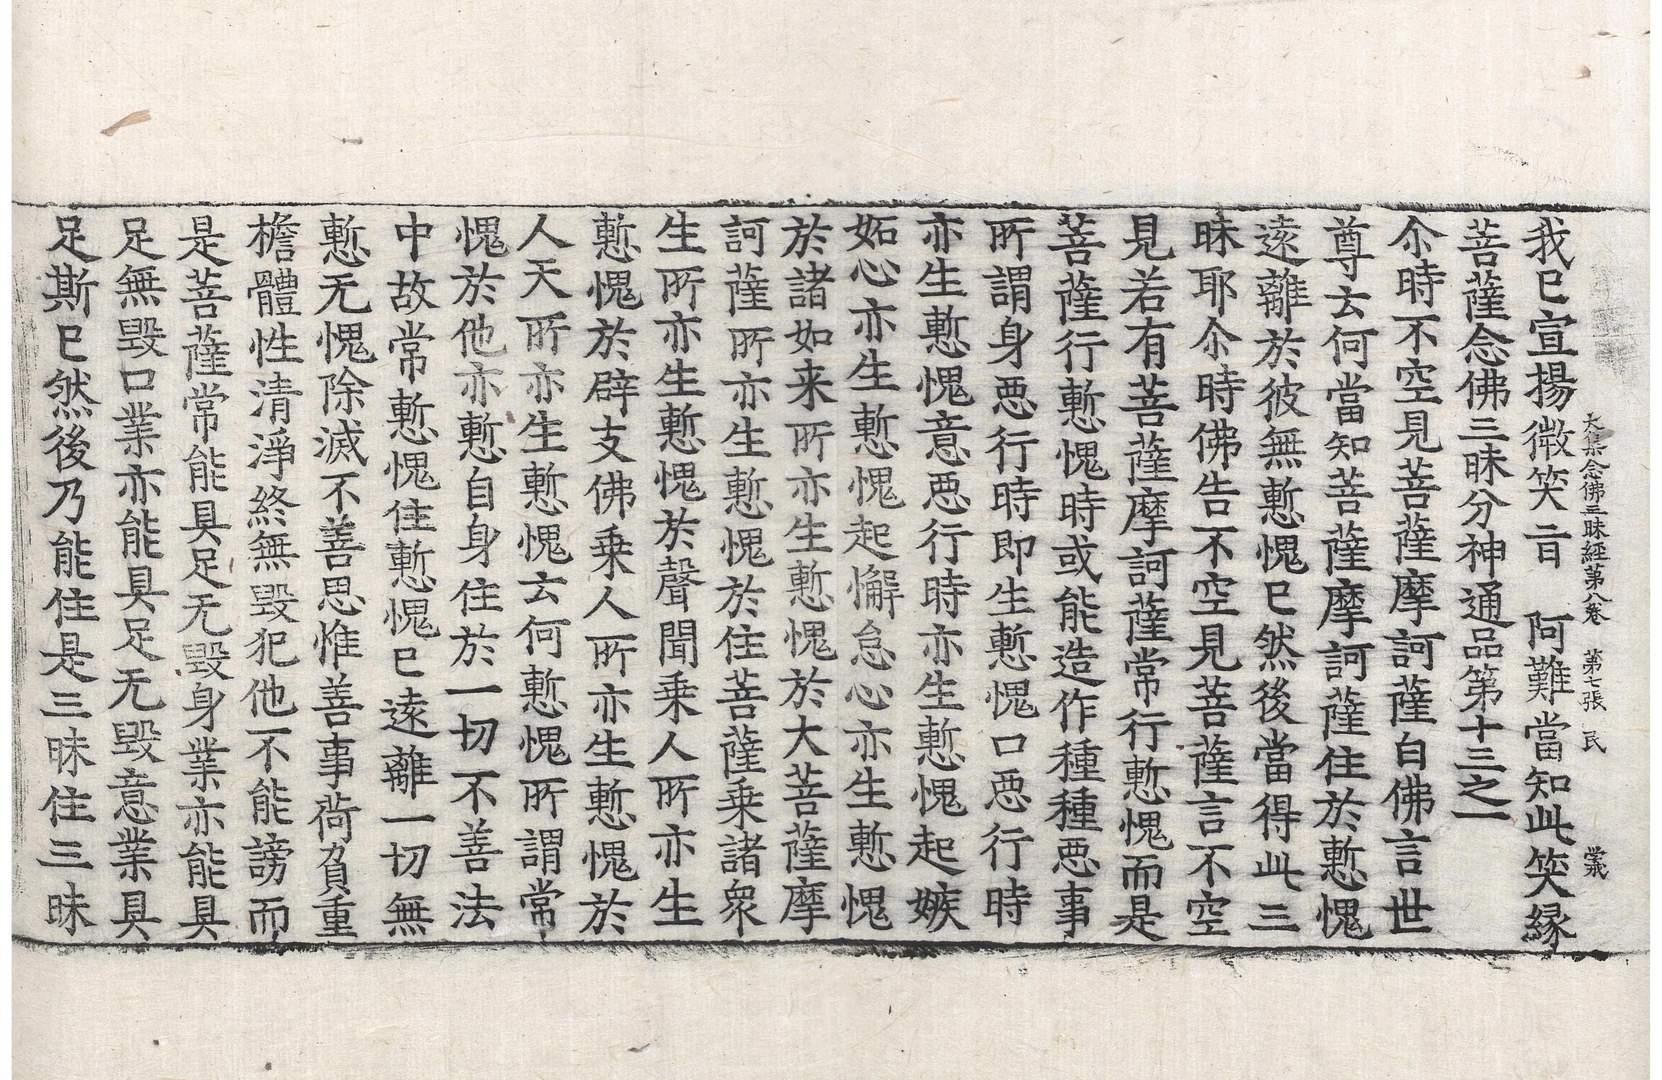 大集念佛三昧經第八卷　第七張　民
我已宣揚微笑音　阿難當知此笑緣
菩薩念佛三昧分神通品第十三之一
尒時不空見菩薩摩訶薩白佛言世
尊云何當知菩薩摩訶薩住於慙愧
遠離於彼無慙愧已然後當得此三
昧耶尒時佛告不空見菩薩言不空
見若有菩薩摩訶薩常行慙愧而是
菩薩行慙愧時或能造作種種惡事
所謂身惡行時即生慙愧口惡行時
亦生慙愧意惡行時亦生慙愧起嫉
妬心亦生慙愧起懈怠心亦生慙愧
於諸如来所亦生慙愧於大菩薩摩
訶薩所亦生慙愧於住菩薩乗諸衆
生所亦生慙愧於聲聞乗人所亦生
慙愧於辟支佛乗人所亦生慙愧於
人天所亦生慙愧云何慙愧所謂常
愧於他亦慙自身住於一切不善法
中故常慙愧住慙愧已遠離一切無
慙无愧除滅不善思惟善事荷負重
檐體性清淨終無毀犯他不能謗而
是菩薩常能具足无毀身業亦能具
足無毀口業亦能具足无毀意業具
足斯已然後乃能住是三昧住三昧